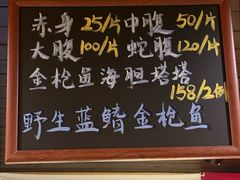 赤身25/片 中腹50/片
大腹100/片 蛇腹120/片
金枪鱼海胆塔塔
158/2個
野生蓝鳍金枪鱼